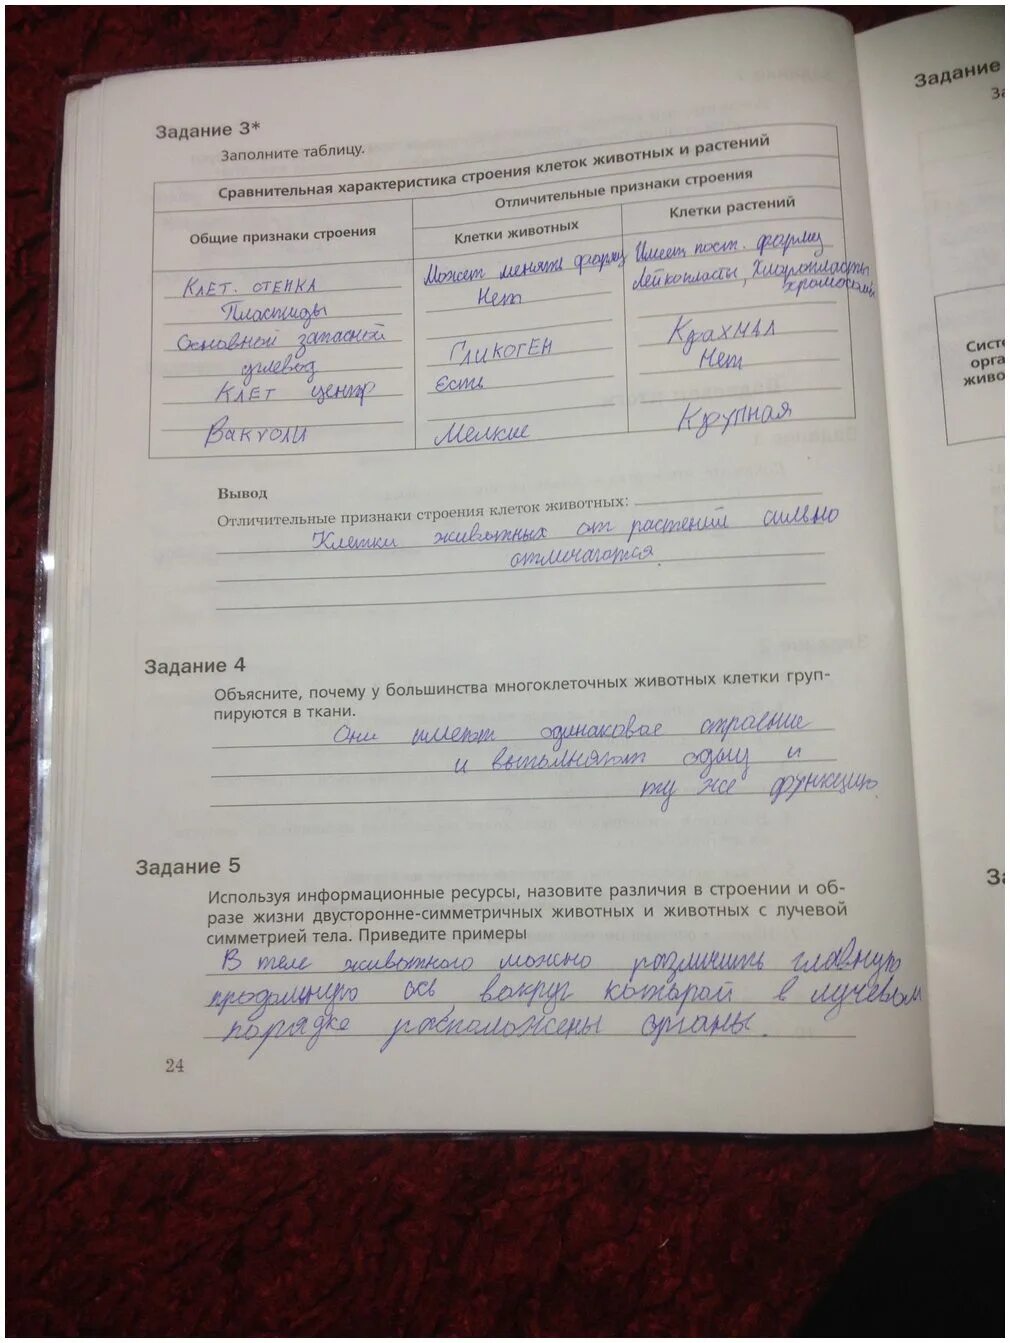 Задание 3*
Заполните таблицу.
Сравнительная характеристика строения клеток животных и растений
Общие признаки строения
Отличительные признаки строения
Клетки животных
Клетки растений
Клет. стенка
Может менять форму
Имеет пост. форму
Пластиды
Нет
Лейкопласты, Хлоропласты
хромосомы
Основной запасной
углевод
Гликоген
Крахмал
Клет центр
Есть
Нет
Вакуоли
Мелкие
Крупная
Вывод
Отличительные признаки строения клеток животных:
Клетки животных от растений сильно
отличаются
Задание 4
Объясните, почему у большинства многоклеточных животных клетки груп-
пируются в ткани.
Они имеют одинаковое строение
и выполняют одну и
ту же функцию
Задание 5
Используя информационные ресурсы, назовите различия в строении и об-
разе жизни двусторонне-симметричных животных и животных с лучевой
симметрией тела. Приведите примеры
В теле животного можно различить главную
продольную ось, вокруг которой в лучевом
порядке расположены органы.
24
Задание
За
Систе
орга
живо
За